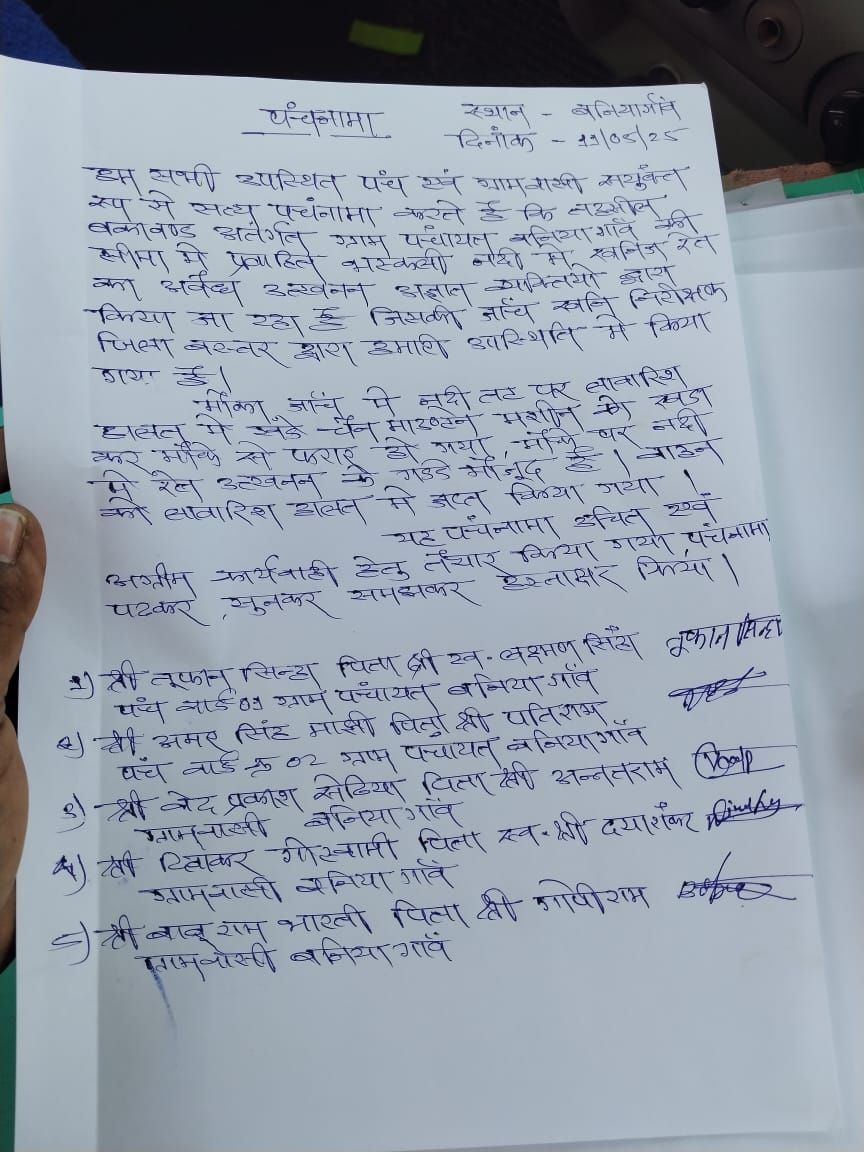 पंचनामा
स्थान - बनियागाँव
दिनांक - 11/05/25
हम सभी उपस्थित पंच एवं ग्रामवासी सयुंक्त
रूप से सत्य पंचनामा करते है कि तहसील
बकावण्ड अतंर्गत ग्राम पंचायत बनियागाँव की
सीमा में प्रवाहित भास्कली नदी में खनिज रेत
का अवैध उत्खनन अज्ञात व्यक्तियों द्वारा
किया जा रहा है जिसकी जाँच खनि निरीक्षक
जिला बस्तर द्वारा हमारी उपस्थिति में किया
गया है।
मौका जाँच में नदी तट पर लावारिश
हालत में खडे चैन माउण्टेन मशीन को खडा
कर मौके से फरार हो गया, मौके पर नदी
में रेत उत्खनन के गडडे मौजूद है। वाहन
को लावारिश हालत में जप्त किया गया।
यह पंचनामा उचित एवं
अग्रीम कार्यवाही हेतु तैयार किया गया, पंचनामा
पढकर, सुनकर समझकर हस्ताक्षर किया।
1) श्री तूफान सिन्हा पिता श्री स्व. लक्ष्मण सिंह तूफान सिन्हा
पंच वार्ड 01 ग्राम पंचायत बनियागाँव
2) श्री अमर सिंह माझी पिता श्री पतिराम
पंच वार्ड क्र 02 ग्राम पंचायत बनियागाँव
3) श्री वेद प्रकाश सेठिया पिता श्री अनन्तराम
ग्रामवासी बनियागाँव
4) श्री दिवाकर गोस्वामी पिता स्व. श्री दयाशंकर
ग्रामवासी बनियागाँव
5) श्री बाबू राम भारती पिता श्री गोपीराम
ग्रामवासी बनियागाँव